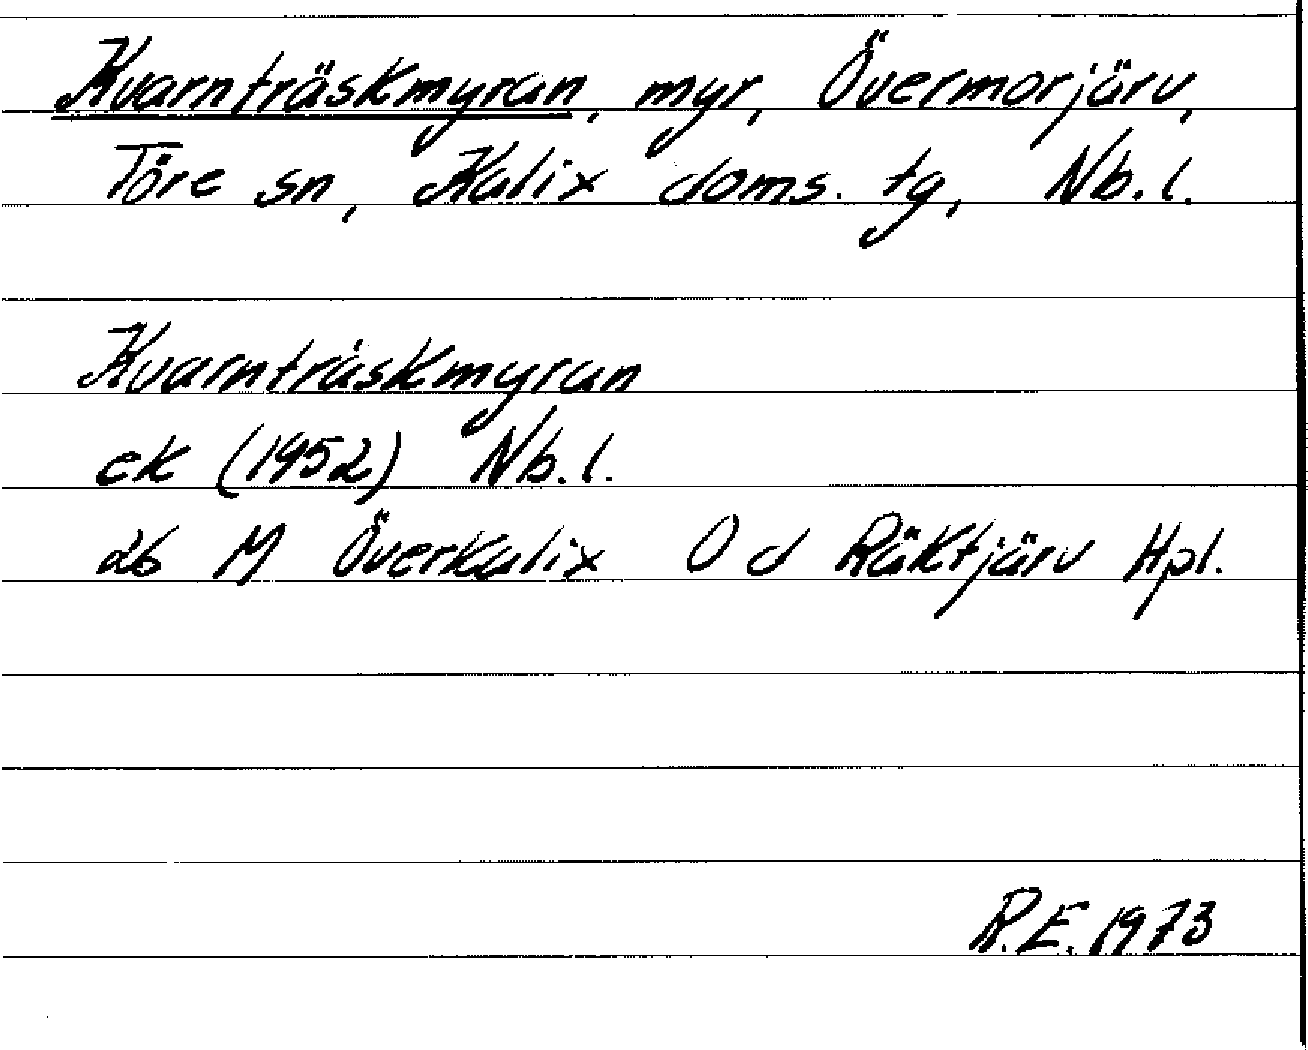 Kvarnträskmyran, myr, Övermorjärv,
Töre sn, Kalix doms. tg, Nb.l.
Kvarnträskmyran
ek (1952) Nb.l.
26 M Överkalix Od Räktjärv Hpl.
R.E. 1973